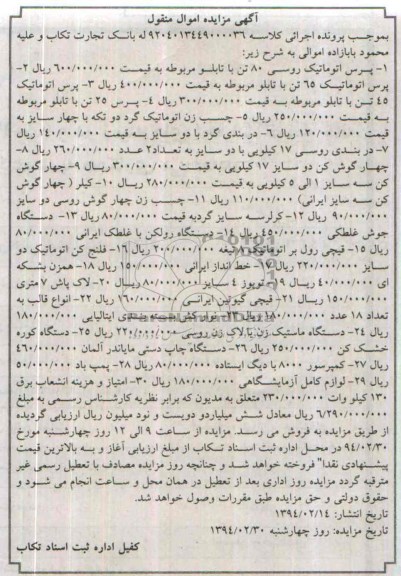 آگهی مزایده اموال منقول
بموجب پرونده اجرائی کلاسه ۹۲۰۴۰۱۳۴۴۹۰۰۰۰۳۶ له بانک تجارت تکاب و علیه
محمود بابازاده اموالی به شرح زیر:
۱- پرس اتوماتیک روسی ۸۰ تن با تابلو مربوطه به قیمت ۶۰۰/۰۰۰/۰۰۰ ریال ۲-
پرس اتوماتیک ۶۵ تن با تابلو مربوطه به قیمت ۴۰۰/۰۰۰/۰۰۰ ریال ۳- پرس اتوماتیک
۴۵ تن با تابلو مربوطه به قیمت ۳۰۰/۰۰۰/۰۰۰ ریال ۴- پرس ۲۵ تن با تابلو مربوطه
به قیمت ۲۵۰/۰۰۰/۰۰۰ ریال ۵- چسب زن اتوماتیک گرد دو تکه با چهار سایز به
قیمت ۱۲۰/۰۰۰/۰۰۰ ریال ۶- در بندی گرد با دو سایز به قیمت ۱۴۰/۰۰۰/۰۰۰ ریال
۷- در بندی روسی ۱۷ کیلویی با دو سایز به تعداد۲ عدد ۲۶۰/۰۰۰/۰۰۰ ریال ۸-
چهار گوش کن دو سایز ۱۷ کیلویی به قیمت ۳۰۰/۰۰۰/۰۰۰ ریال ۹- چهار گوش
کن سه سایز ۱ الی ۵ کیلویی به قیمت ۲۸۰/۰۰۰/۰۰۰ ریال ۱۰- کیلر ( چهار گوش
کن سه سایز ایرانی) ۱۱۰/۰۰۰/۰۰۰ ریال ۱۱- چسب زن چهار گوش روسی دو سایز
۹۰/۰۰۰/۰۰۰ ریال ۱۲- کرلرسه سایز گردبه قیمت ۸۰/۰۰۰/۰۰۰ ریال ۱۳- دستگاه
جوش غلطکی ۴۵۰/۰۰۰/۰۰۰ ریال ۱۴- دستگاه رولکن با غلطک ایرانی ۸۰/۰۰۰/۰۰۰
ریال ۱۵- قیچی رول بر اتوماتیک ۸ تیغه ۲۰۰/۰۰۰/۰۰۰ ریال ۱۶- فلنج کن اتوماتیک دو
سایز ۲۲۰/۰۰۰/۰۰۰ ریال ۱۷- خط انداز ایرانی ۱۵۰/۰۰۰/۰۰۰ ریال ۱۸- همزن بشکه
ای ۴۰/۰۰۰/۰۰۰ ریال ۱۹- توپوز ۴ سایز ۸۰/۰۰۰/۰۰۰ ریال ۲۰- لاک پاش ۷ متری
۱۵۰/۰۰۰/۰۰۰ ریال ۲۱- قیچی گیوتین ایرانی ۱۶۰/۰۰۰/۰۰۰ ریال ۲۲- انواع قالب به
تعداد ۱۸ عدد ۱۸۰/۰۰۰/۰۰۰ ریال ۲۳- ایتالیایی ۱۸۰/۰۰۰/۰۰۰
ریال ۲۴- دستگاه ماستیک زن یا لاک زن روسی ۲۲۰/۰۰۰/۰۰۰ ریال ۲۵- دستگاه کوره
خشک کن ۲۵۰/۰۰۰/۰۰۰ ریال ۲۶- دستگاه چاپ دستی مایاندر آلمان ۴۶۰/۰۰۰/۰۰۰
ریال ۲۷- کمپرسور ۸۰۰۰ با دیگ ایستاده ۸۰/۰۰۰/۰۰۰ ریال ۲۸- پمپ باد ۵۰/۰۰۰/۰۰۰
ریال ۲۹- لوازم کامل آزمایشگاهی ۱۸۰/۰۰۰/۰۰۰ ریال ۳۰- امتیاز و هزینه انشعاب برق
۱۳۰ کیلو وات ۲۳۰/۰۰۰/۰۰۰ متعلق به مدیون که برابر نظریه کارشناس رسمی به مبلغ
۶/۲۹۰/۰۰۰/۰۰۰ ریال معادل شش میلیاردو دویست و نود میلیون ریال ارزیابی گردیده
از طریق مزایده به فروش می رسد. مزایده از ساعت ۹ الی ۱۲ روز چهارشنبه مورخ
۹۴/۰۲/۳۰ در محل اداره ثبت اسناد تکاب از مبلغ ارزیابی آغاز و به بالاترین قیمت
پیشنهادی نقدا" فروخته خواهد شد و چنانچه روز مزایده مصادف با تعطیل رسمی غیر
مترقبه گردد مزایده روز اداری بعد از تعطیل در همان محل و ساعت انجام می شود و
حقوق دولتی و حق مزایده طبق مقررات وصول خواهد شد.
تاریخ انتشار: ۱۳۹۴/۰۲/۱۴
تاریخ مزایده: روز چهارشنبه ۱۳۹۴/۰۲/۳۰
کفیل اداره ثبت اسناد تکاب